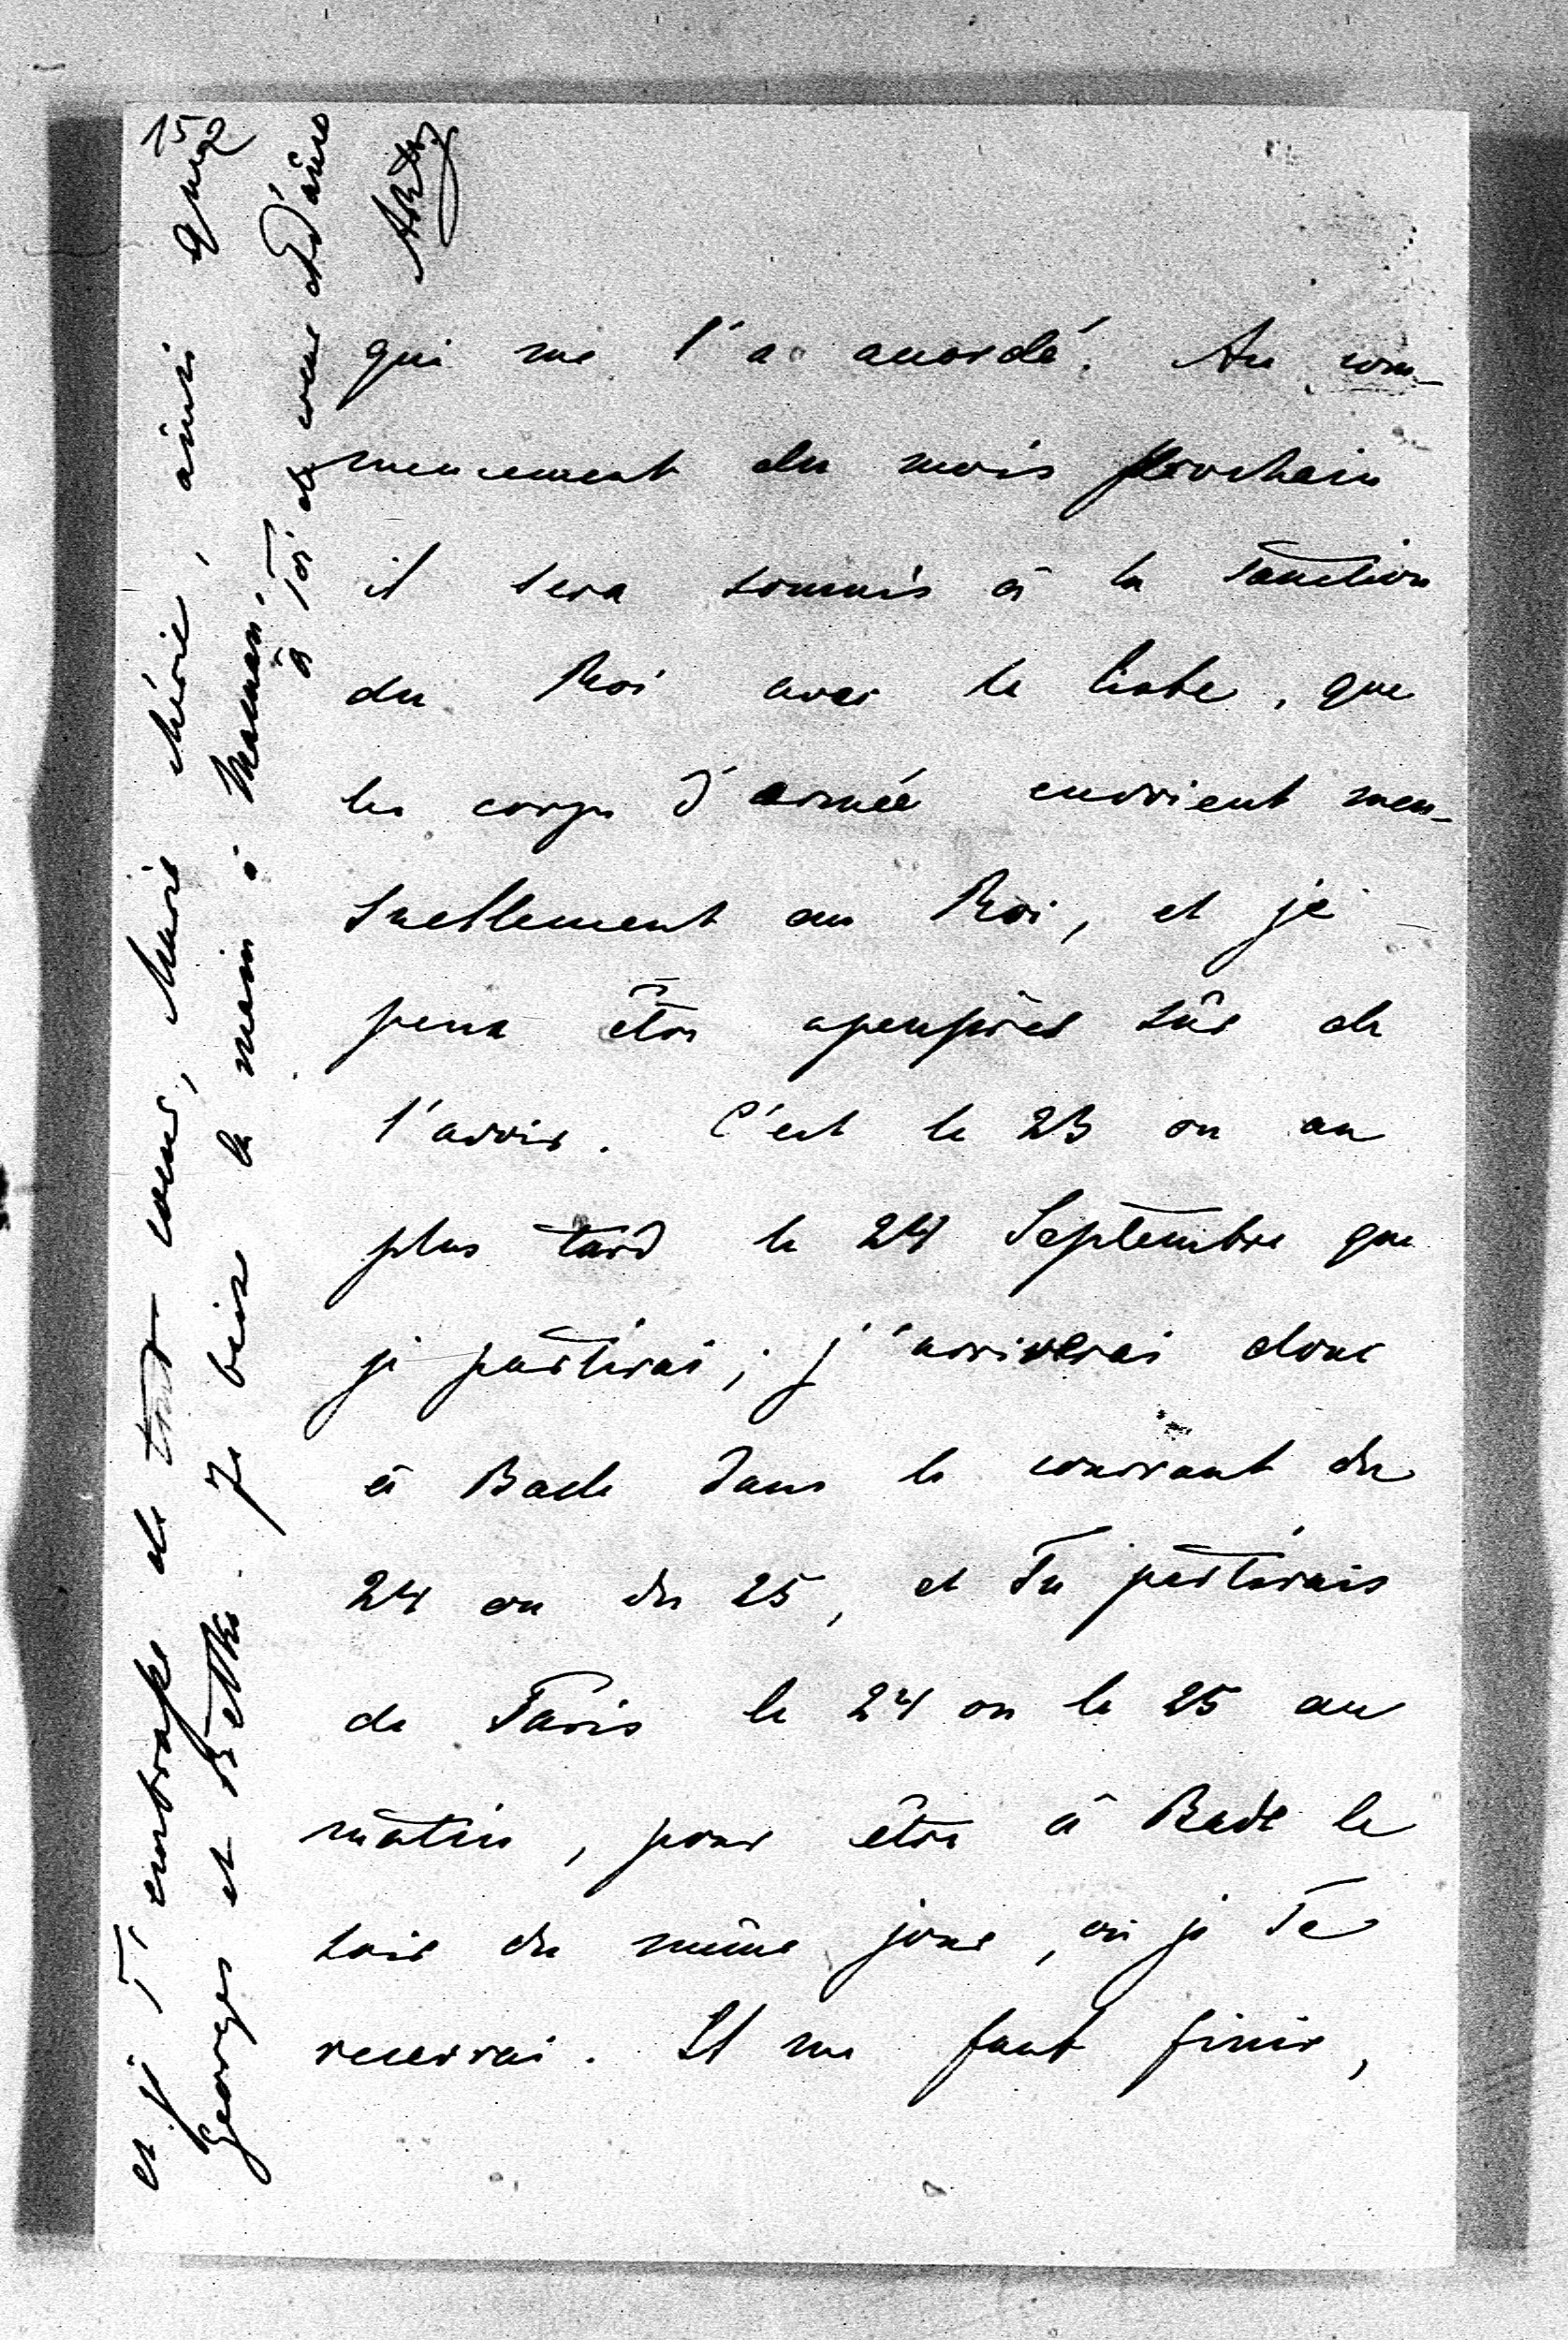 qui me l'a accordé. Au com-
mencement du mois prochain
il sera soumis à la Sanction
du Roi avec la liste, que
les corps d'armée envoient men-
suellement au Roi, et je
peux être apeuprès sûr de
l'avoir. C'est le 23 ou au
plus tard le 24 Septembre que
je partirai; j'arriverai donc
à Bade dans le courant du
24 ou du 25, et Tu partirais
de Paris le 24 ou le 25 au
matin, pour être à Bade le
soir du même jour, où je Te
recevrai. Il me faut finir,
et je T'embrasse de tout coeur, Marie chérie, ainsi que
Georges et Betka. Je baise la main à Maman.
à Toi de coeur et d'âme
152